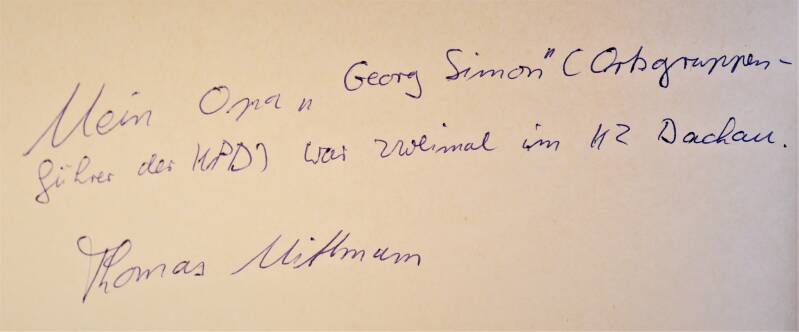 Mein Opa „Georg Simon" (Ortsgruppen-
führer der KPD) war zweimal im KZ Dachau.
Thomas Mittmann